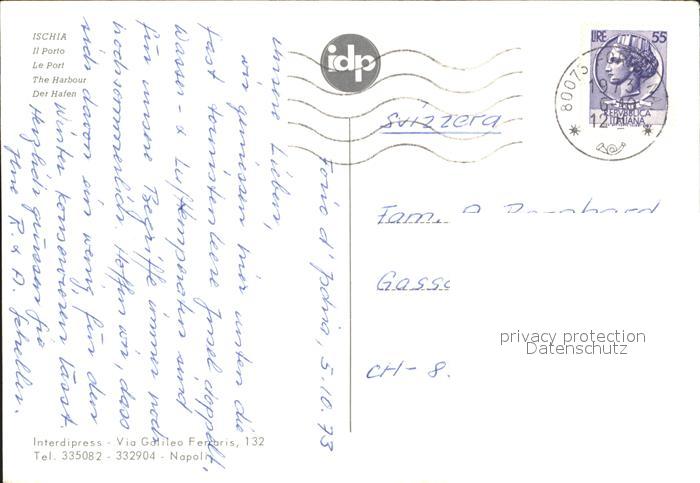 ISCHIA
Il Porto
Le Port
The Harbour
Der Hafen
idp
LIRE 55
REPVBBLICA
ITALIANA
80075
19
12
Svizzera
Fam.
Gass
CH - 8.
privacy protection
Datenschutz
Forio d' Ischia, 5.10.73
unsere Lieben,
wir geniessen hier unten die
fast touristenleere Insel doppelt,
Wasser- & Lufttemperatur sind
für unsere Begriffe immer noch
hochsommerlich. Hoffen wir, dass
sich davon ein wenig für den
Winter konservieren lässt.
Herzlich grüssen Sie
Ihre R. & A.
Interdipress - Via Galileo Ferraris, 132
Tel. 335082 - 332904 - Napoli